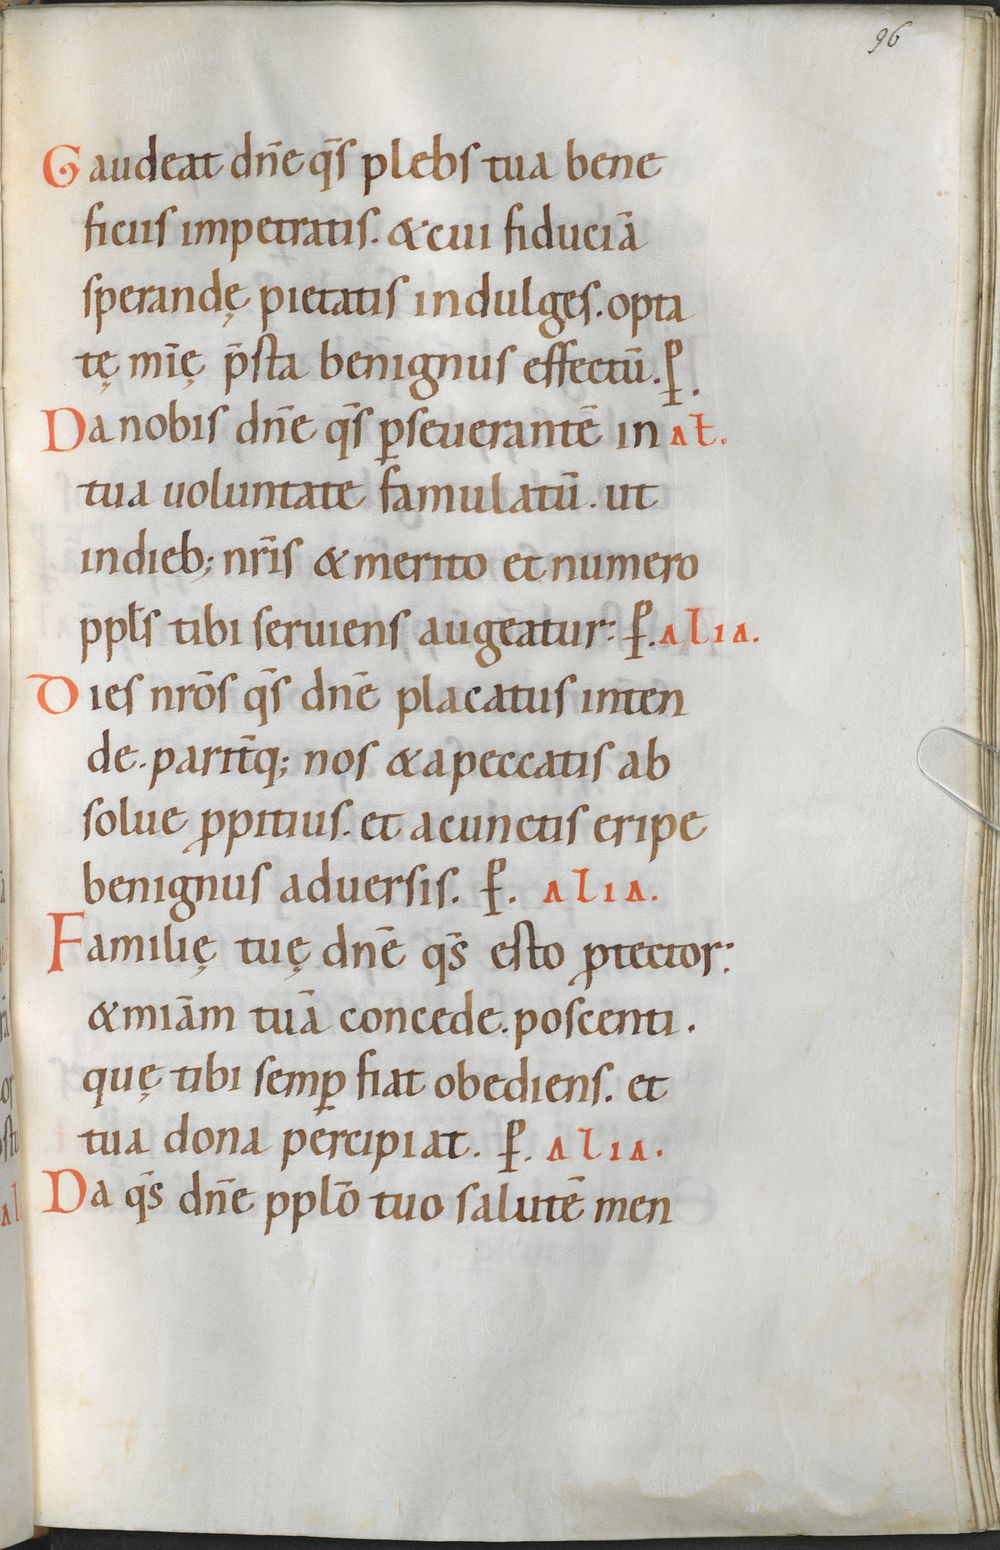 96
Gaudeat dn̄e q̄s plebs tua bene
ficiis impetratis. & cui fiduciā
sperandę pietatis indulges. opta
tę mīę p̄sta benignus effectū. ꝑ.
Da nobis dn̄e q̄s ꝑseuerantē in ał.
tua uoluntate famulatū. ut
in dieb; nr̄is & merito et numero
ppłs tibi seruiens augeatur: ꝑ. alia.
Dies nrōs q̄s dn̄e placatus inten
de. parit̄q; nos & a peccatis ab
solue ꝓpitius. et a cunctis eripe
benignus aduersis. ꝑ. alia.
Familię tuę dn̄e q̄s esto ꝓtector:
& miām tuā concede. poscenti.
quę tibi semꝑ fiat obediens. et
tua dona percipiat. ꝑ. alia.
Da q̄s dn̄e pplō tuo salutē men